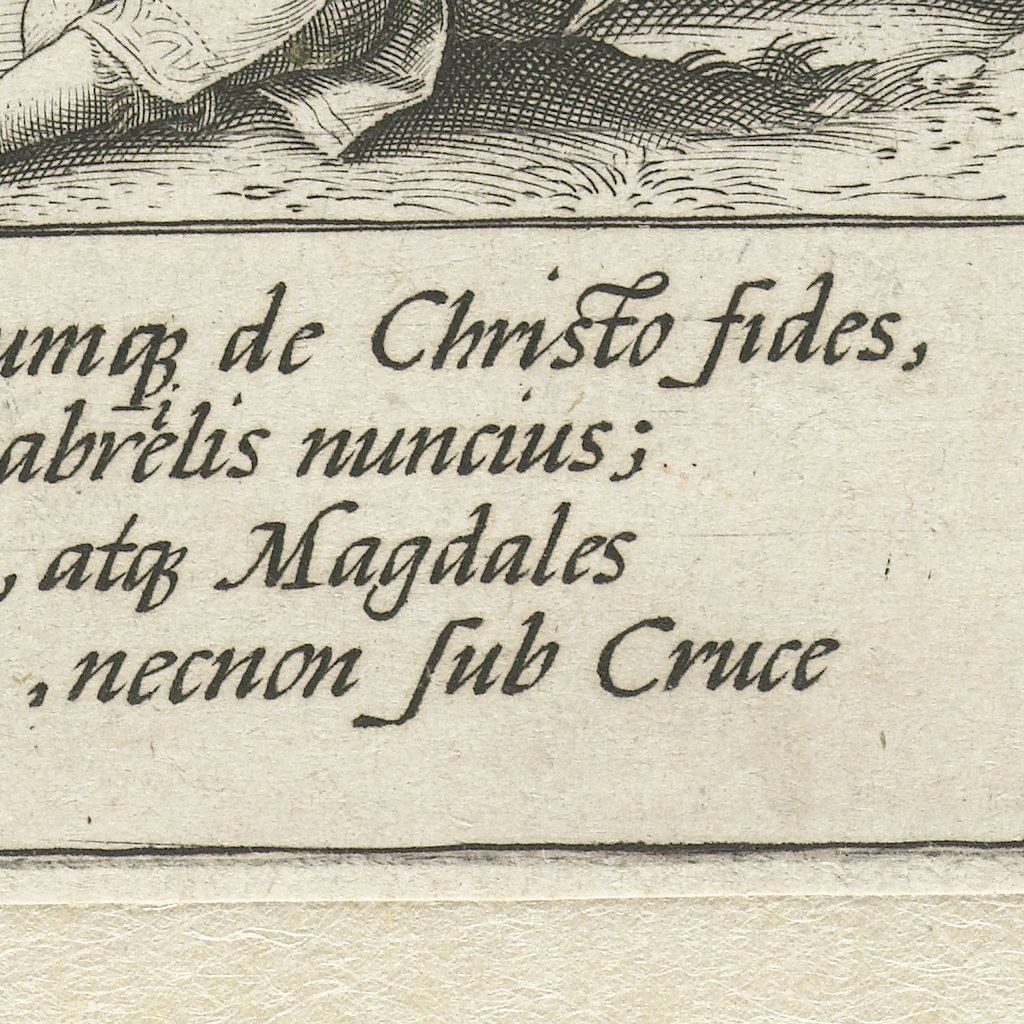 umq; de Christo fides,
abrielis nuncius;
, atq; Magdales
, necnon ſub Cruce